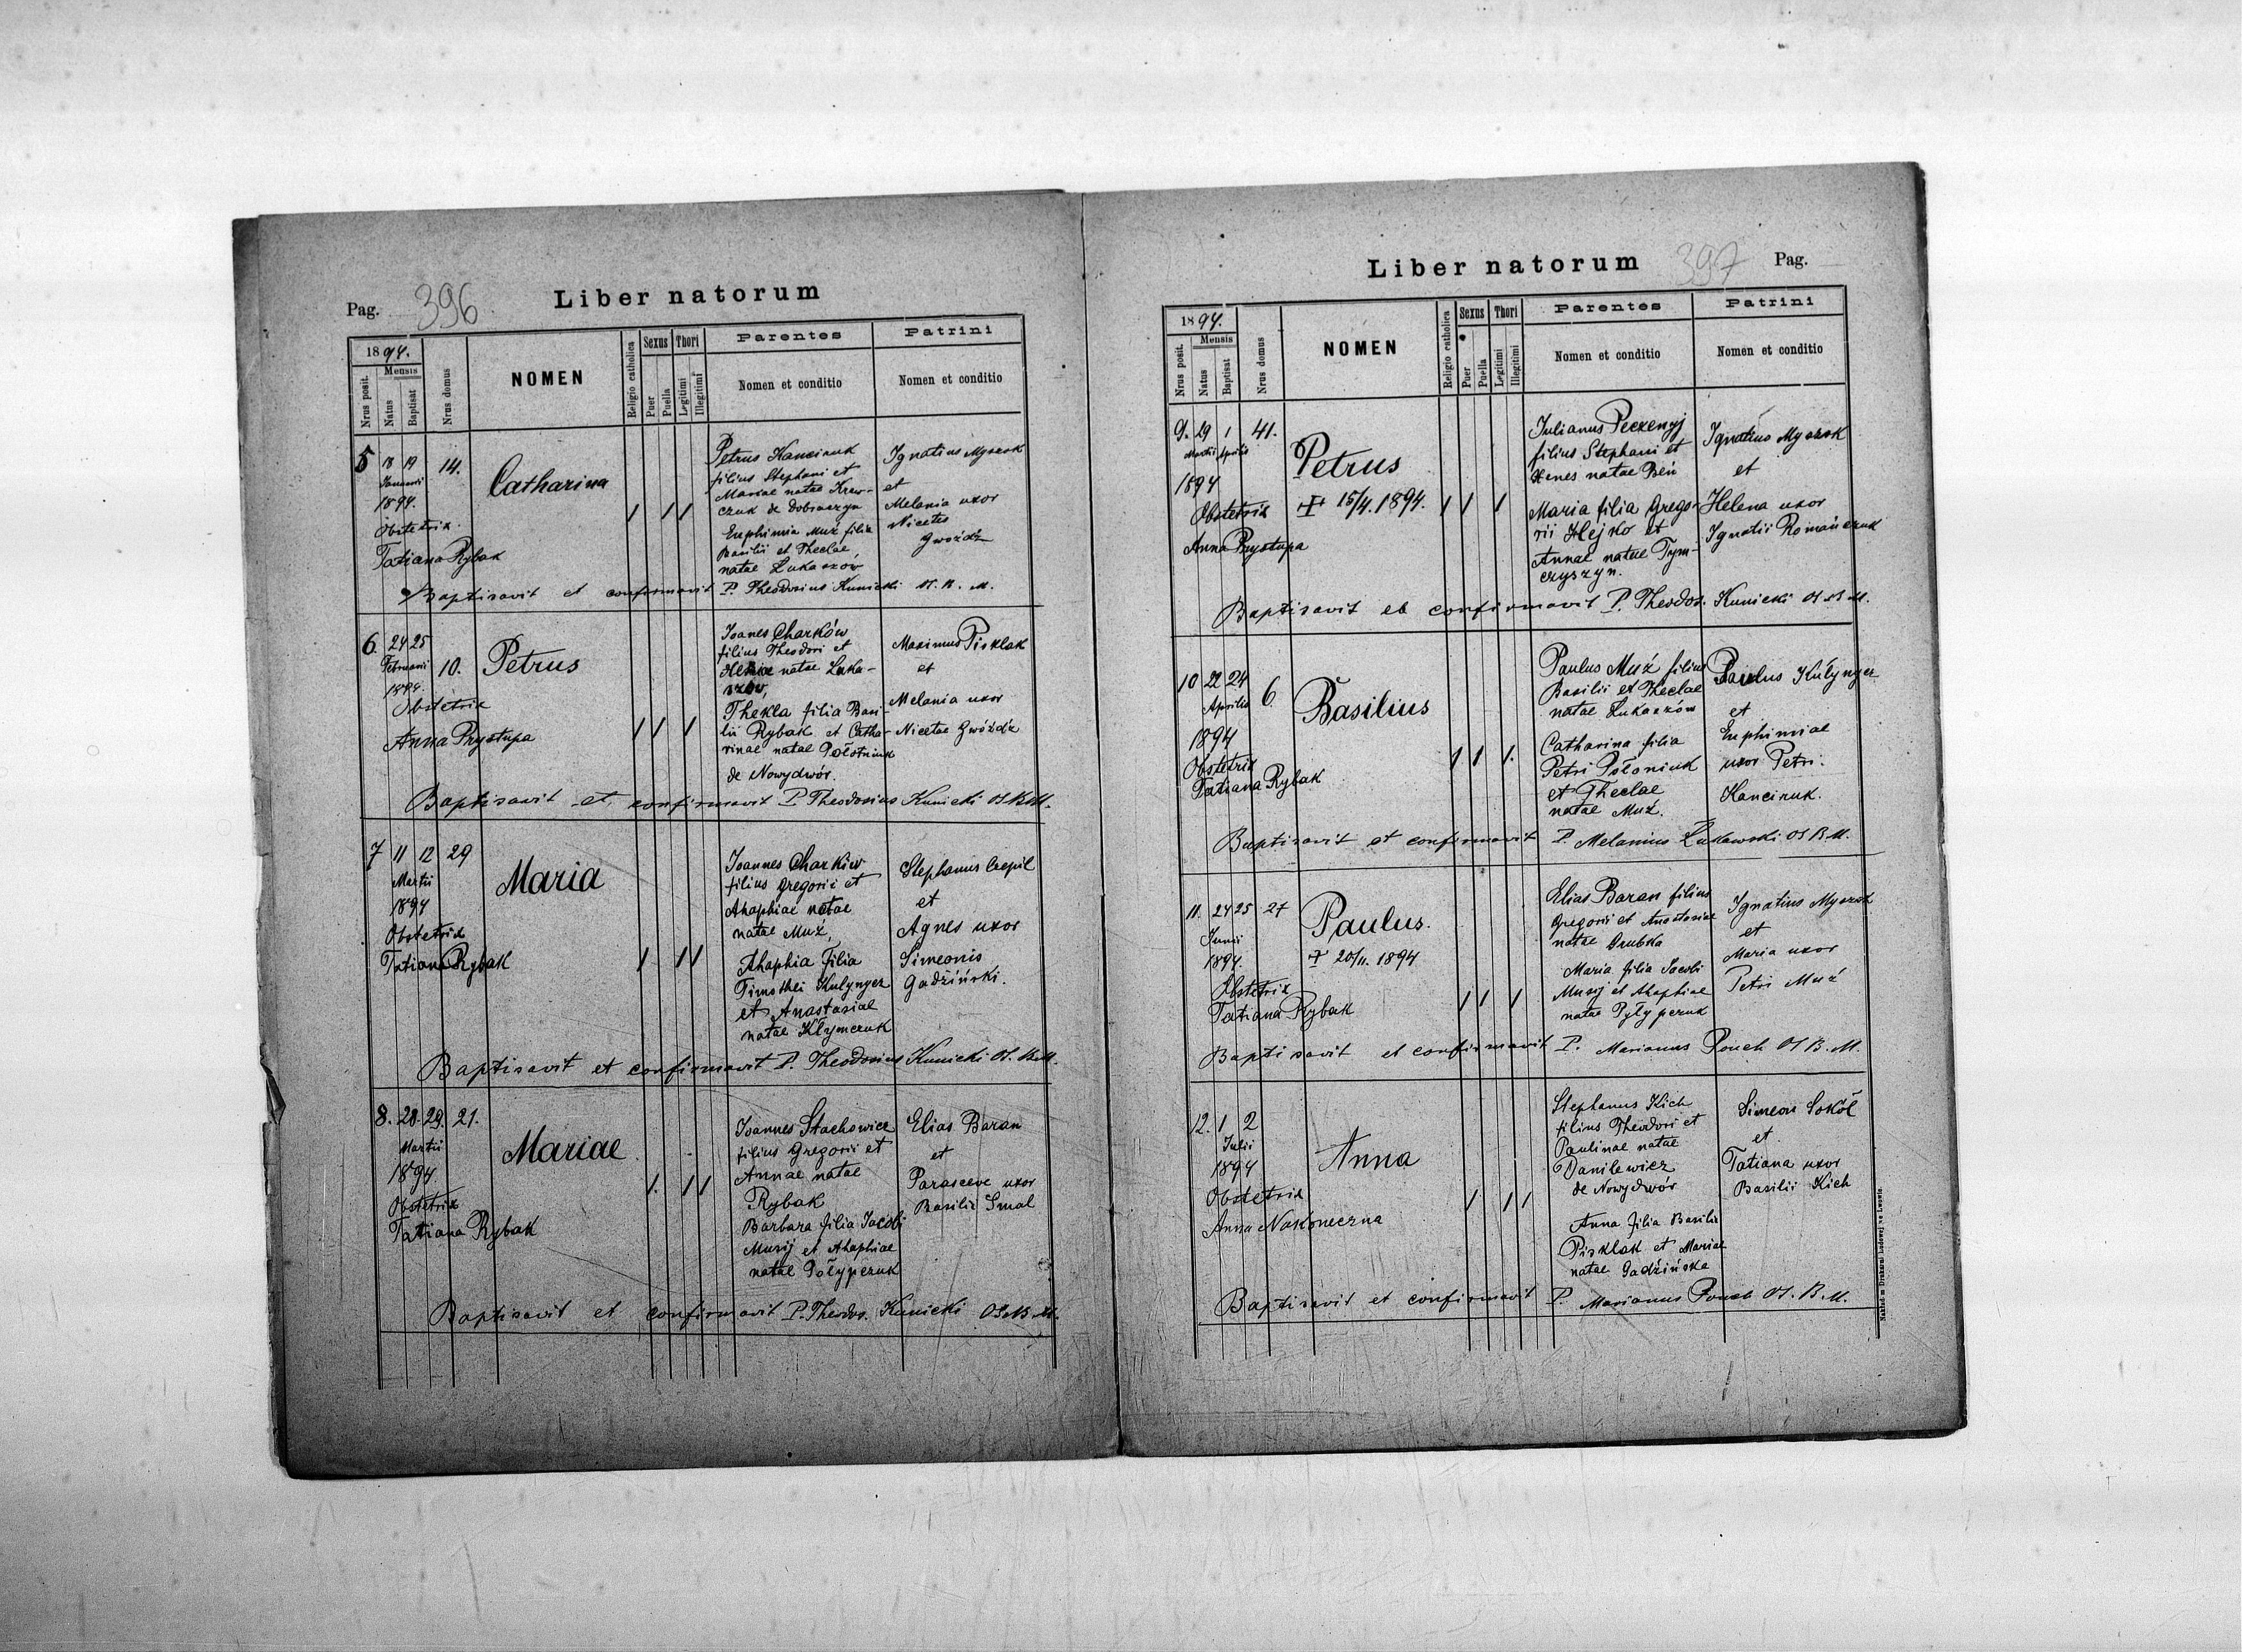 Pag. 396 Liber natorum
1894. Nrus domus NOMEN Religio catholica Sexus Thori Parentes Patrini
Nrus posit. Mensis Natus Baptisat Puer Puella Legitimi Illegitimi Nomen et conditio Nomen et conditio
5 18 19 14.
Januarii
1894.
Obstetrix
Tatiana Rybak
Catharina
1 1 1
Petrus Kanciruk
filius Stephani et
Mariae natae Kraw-
czuk de Dobraczyn
Euphimia Muź filia
Basilii et Theclae
natae Łukaszów
Ignatius Myszok
et
Melania uxor
Nicetes
Gwoźdź
Baptisavit et confirmavit P. Theodosius Kunicki O. S. B. M.
6. 24 25
Februarii 10.
1894.
Obstetrix
Anna Prystupa
Petrus
1 1 1
Joanes Charków
filius Theodori et
natae Łuka-
szów,
Thekla filia Basi-
lii Rybak et Catha-
rinae natae Połotniuk
de Nowydwór.
Maximus Pisklak
et
Melania uxor
Nicetae Gwóźdź
Baptisavit et confirmavit P. Theodosius Kunicki OSBM.
7 11 12 29
Martii
1894
Obstetrix
Tatiana Rybak
Maria
1 1 1
Joannes Charkiw
filius Gregorii et
Ahaphiae natae
natae Muź,
Ahaphia filia
Timothei Kulynycz
et Anastasiae
natae Klymczuk
Stephanus Czepil
et
Agnes uxor
Simeonis
Gadźiński.
Baptisavit et confirmavit P. Theodosius Kunicki O. S. B. M.
8. 28. 29. 21.
Martii
1894.
Obstetrix
Tatiana Rybak
Mariae
1. 1 1
Joannes Stachowicz
filius Gregorii et
Annae natae
Rybak
Barbara filia Jacobi
Musij et Ahaphiae
natae Połypczuk
Elias Baran
et
Parasceve uxor
Basilii Smal
Baptisavit et confirmavit P. Theodos. Kunicki OSBM.
Liber natorum 397 Pag.
1894. Nrus domus NOMEN Religio catholica Sexus Thori Parentes Patrini
Nrus posit. Mensis Natus Baptisat Puer Puella Legitimi Illegitimi Nomen et conditio Nomen et conditio
9. 29 1 41.
Martii Aprilis
1894
Obstetrix
Anna Prystupa
Petrus
15/4. 1894.
1 1 1
Julianus Peczenyj
filius Stephani et
natae Beń
Maria filia Grego-
rii Hejko et
Annae natae Tym-
czyszyn.
Ignatius Myszok
et
Helena uxor
Ignatii Romańczuk
Baptisavit et confirmavit P. Theodos. Kunicki OSBM.
10 22 24
Aprilis 6.
1894
Obstetrix
Tatiana Rybak
Basilius
1 1 1.
Paulus Muź filius
Basilii et Theclae
natae Łukaszów
Catharina filia
Petri Połoniuk
et Theclae
natae Muź.
Paulus Kulynycz
et
Euphimiae
uxor Petri
Kanciruk.
Baptisavit et confirmavit P. Melanius Łukawski OSBM.
11. 24 25 27
Junii
1894.
Obstetrix
Tatiana Rybak
Paulus.
20/11. 1894
1 1 1
Elias Baran filius
Gregorii et Anastasiae
natae Drubka
Maria filia Jacobi
Musij et Ahaphiae
natae Pyłypczuk
Ignatius Myszok
et
Maria uxor
Petri Muź
Baptisavit et confirmavit P. Marianus Powch OSB. M.
12. 1 2
Julii
1894
Obstetrix
Anna Nakoneczna
Anna
1 1 1
Stephanus Kich
filius Theodori et
Paulinae natae
Danilewicz
de Nowydwór
Anna filia Basilii
Pisklak et Mariae
natae Gadźińska
Simeon Sokół
et
Tatiana uxor
Basilii Kich
Baptisavit et confirmavit P. Marianus Powch OS. B. M.